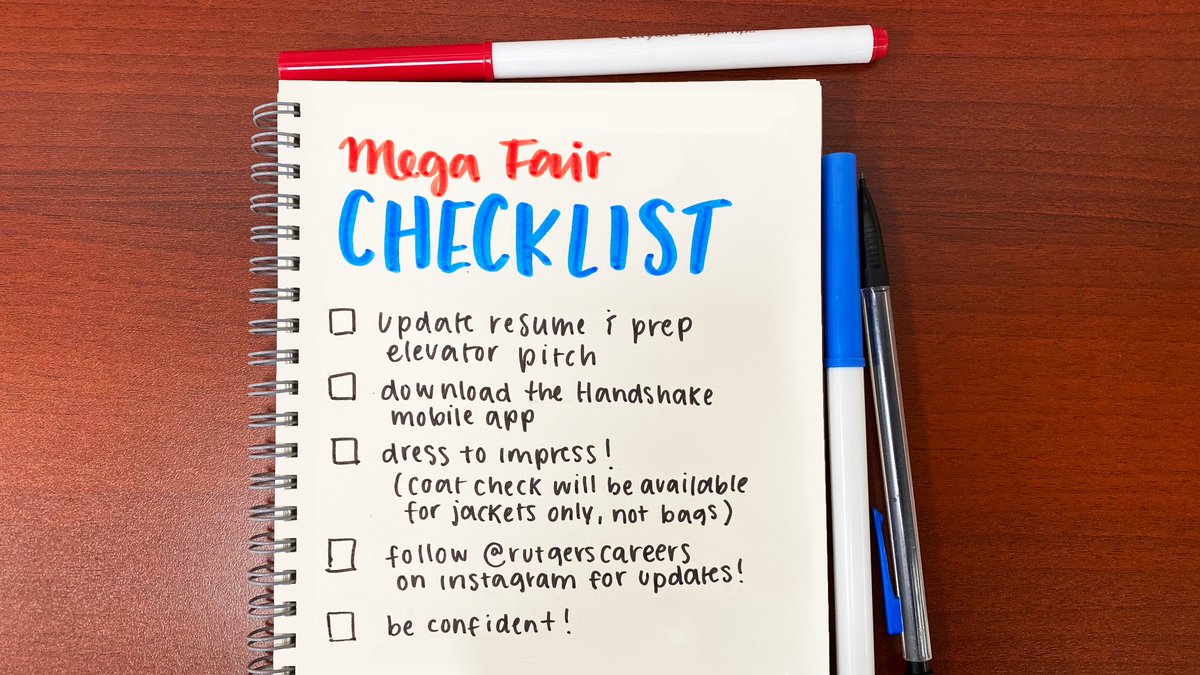 Mega Fair
CHECKLIST
update resume & prep
elevator pitch
download the Handshake
mobile app
dress to impress!
(coat check will be available
for jackets only, not bags)
follow @rutgerscareers
on instagram for updates!
be confident!